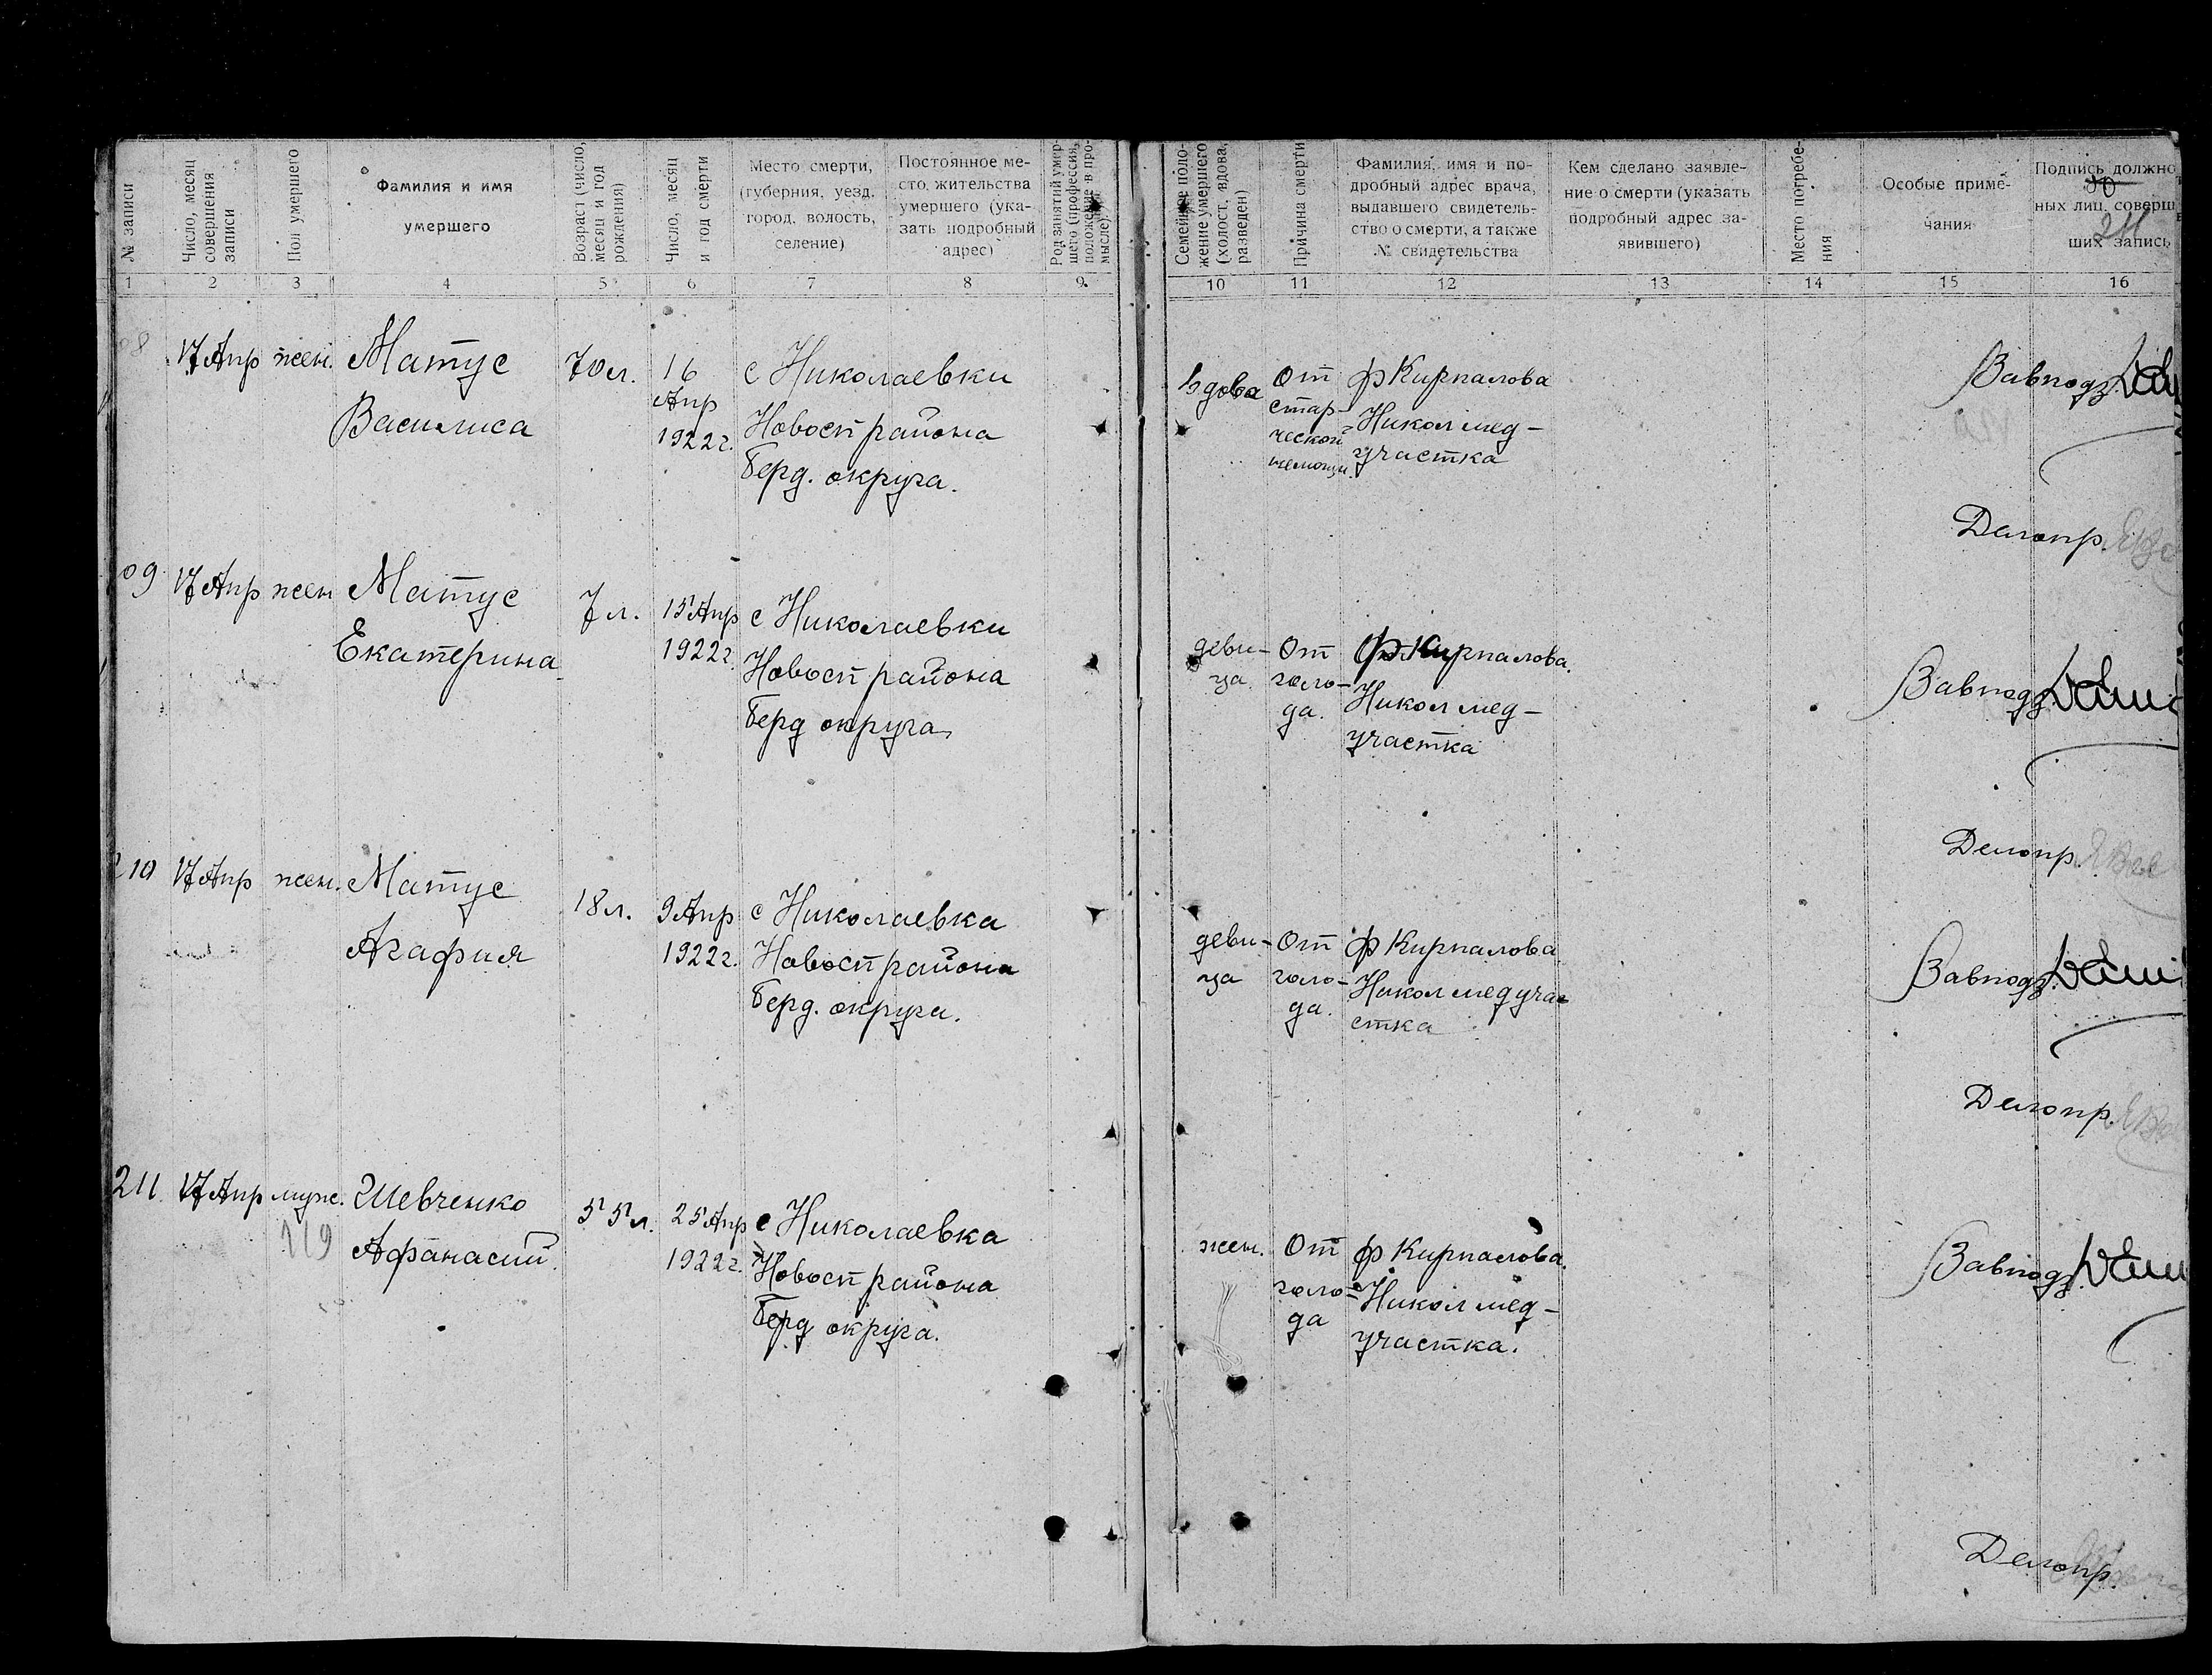 № записи
Число, месяц
совершения
записи
Пол умершего
Фамилия и имя
умершего
Возраст (число,
месяц и год
рождения)
Число, месяц
и год смерти
Место смерти,
(губерния, уезд.
город, волость,
селение)
Постоянное ме-
сто, жительства
умершего (ука-
зать подробный
адрес)
Род занятий умер-
шего (профессия,
положение в про-
мысле).
Семейное поло-
жение умершего
(холост, вдова,
разведен)
Причина смерти
Фамилия, имя и по-
дробный адрес врача,
выдавшего свидетель-
ство о смерти, а также
№ свидетельства
Кем сделано заявле-
ние о смерти (указать
подробный адрес за-
явившего)
Место погребе-
ния
Особые приме-
чания
Подпись должно
ных лиц, соверш
ших запись
211
1 2 3 4 5 6 7 8 9 10 11 12 13 14 15 16
08 17 Апр жен. Матус
Василиса
70 л.
16
Апр
1922 г.
с Николаевки
Новосп района
Берд. округа.
вдова
От
стар-
ческой
немощи.
ф Кирпалова
Никол мед-
участка
Завподз.
Делопр.
09 17 Апр жен Матус
Екатерина
7 л.
15 Апр
1922 г.
с Николаевки
Новосп района
Берд округа
деви-
ца
От
голо-
да.
ф Кирпалова.
Никол мед-
участка
Завподз.
Делопр.
210 17 Апр жен. Матус
Агафия
18 л.
9 Апр
1922 г.
с Николаевка
Новосп района
Берд. округа.
деви-
ца
От
голо-
да.
ф Кирпалова
Никол медуча-
стка
Завподз.
Делопр.
211 17 Апр муж. Шевченко
119
Афанасий.
55 л.
25 Апр
1922 г.
с Николаевка
Новосп района
Берд округа.
жен.
От
голо-
да
ф Кирпалова.
Никол мед-
участка.
Завподз.
Делопр.